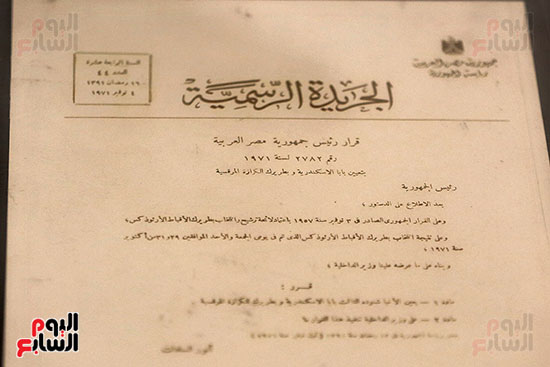 جمهورية مصر العربية
رياسة الجمهورية
السنة الرابعة عشرة
العدد ٤٤
١٦ رمضان ١٣٩١
٤ نوفمبر ١٩٧١
الجريدة الرسمية
قرار رئيس جمهورية مصر العربية
رقم ٢٧٨٢ لسنة ١٩٧١
بتعيين بابا الاسكندرية و بطريرك الكرازة المرقسية
رئيس الجمهورية
بعد الاطلاع على الدستور ؛
وعلى القرار الجمهورى الصادر فى ٣ نوفمبر سنة ١٩٥٧ باعتماد لائحة ترشيح وانتخاب بطريرك الأقباط الأرثوذكس ؛
وعلى نتيجة انتخاب بطريرك الأقباط الأرثوذكس الذى تم فى يومى الجمعة والأحد الموافقين ٢٩ و ٣١ من أكتوبر
سنة ١٩٧١ ؛
و بناء على ما عرضه علينا وزير الداخلية ؛
قــرر :
مادة ١ – يعين الأنبا شنوده الثالث بابا الاسكندرية و بطريرك الكرازة المرقسية
مادة ٢ – على وزير الداخلية تنفيذ هذا القرار
أنور السادات
اليوم السابع
اليوم السابع
اليوم السابع
اليوم السابع